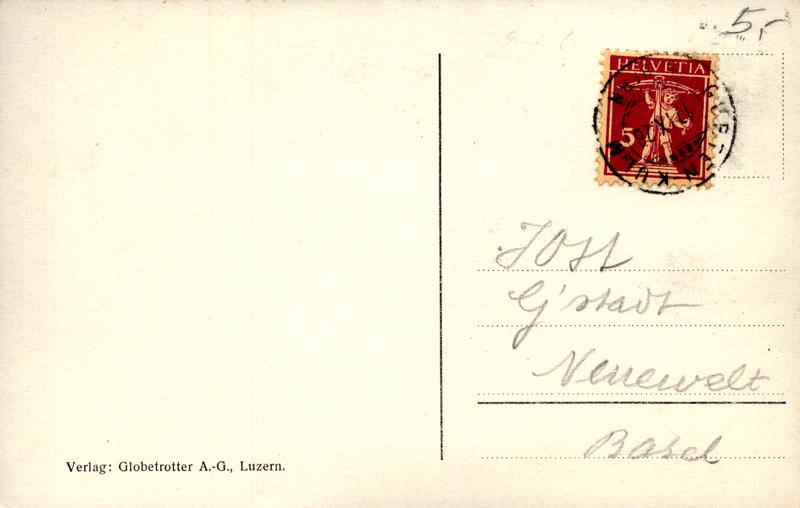 5.-
HELVETIA
5
Jost
Gj'stadt
Neuewelt
Basel
Verlag: Globetrotter A.-G., Luzern.